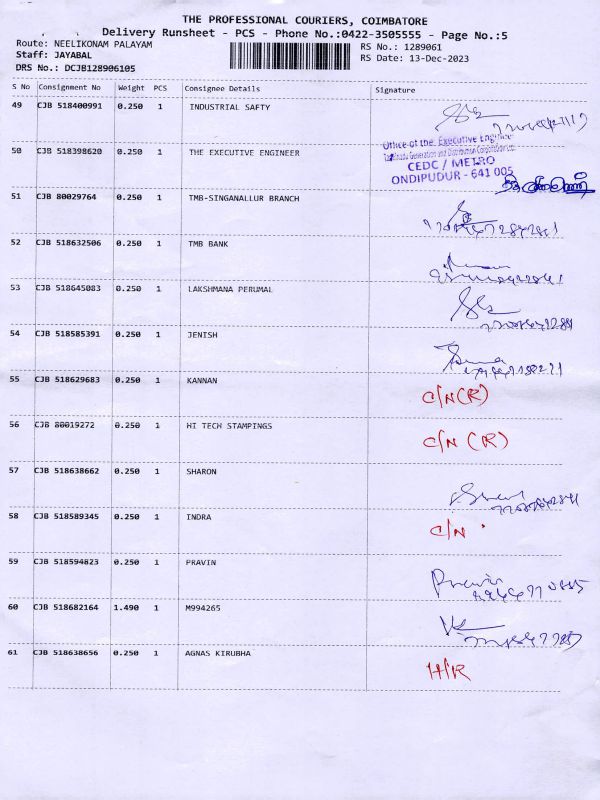 THE PROFESSIONAL COURIERS, COIMBATORE
Delivery Runsheet - PCS - Phone No.:0422-3505555 - Page No.:5
Route: NEELIKONAM PALAYAM RS No.: 1289061
Staff: JAYABAL RS Date: 13-Dec-2023
DRS No.: DCJB128906105
S No Consignment No Weight PCS Consignee Details Signature
49 CJB 518400991 0.250 1 INDUSTRIAL SAFTY
Office of the Executive Engineer
50 CJB 518398620 0.250 1 THE EXECUTIVE ENGINEER
Tamilnadu Generation and Distribution Corporation Ltd
CEDC / METRO
ONDIPUDUR - 641 005
51 CJB 80029764 0.250 1 TMB-SINGANALLUR BRANCH
52 CJB 518632506 0.250 1 TMB BANK
53 CJB 518645083 0.250 1 LAKSHMANA PERUMAL
54 CJB 518585391 0.250 1 JENISH
55 CJB 518629683 0.250 1 KANNAN C/N(R)
56 CJB 80019272 0.250 1 HI TECH STAMPINGS C/N (R)
57 CJB 518638662 0.250 1 SHARON
58 CJB 518589345 0.250 1 INDRA C/N
59 CJB 518594823 0.250 1 PRAVIN Pravin
60 CJB 518682164 1.490 1 M994265
61 CJB 518638656 0.250 1 AGNAS KIRUBHA H/R